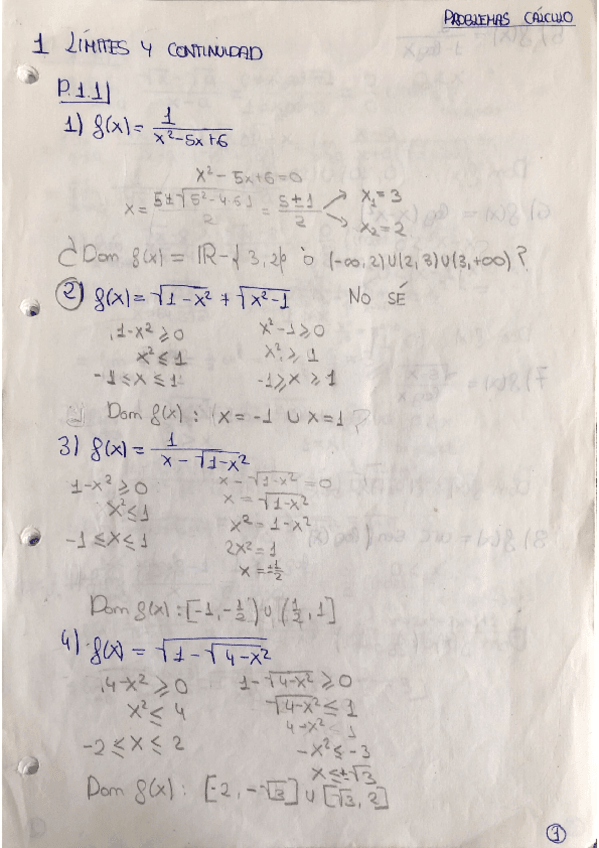 PROBLEMAS CÁLCULO
1 LÍMITES Y CONTINUIDAD
P.1.1
1) f(x) = 1/(x²-5x+6)
x² - 5x + 6 = 0
x = (5 ± √(5²-4·6·1))/2 = (5 ± 1)/2 → x₁ = 3
→ x₂ = 2
¿Dom f(x) = ℝ - {3, 2} ó (-∞, 2) ∪ (2, 3) ∪ (3, +∞)?
2) f(x) = √(1-x²) + √(x²-1) NO SÉ
1-x² ≥ 0 x²-1 ≥ 0
x² ≤ 1 x² ≥ 1
-1 ≤ x ≤ 1 -1 ≥ x ≥ 1
Dom f(x): x = -1 ∪ x = 1?
3) f(x) = 1/(x - √(1-x²))
1-x² ≥ 0 x - √(1-x²) = 0
x² ≤ 1 x = √(1-x²)
-1 ≤ x ≤ 1 x² = 1-x²
2x² = 1
x = ±1/2
Dom f(x): [-1, -1/2) ∪ (1/2, 1]
4) f(x) = √(1 - √(4-x²))
4-x² ≥ 0 1 - √(4-x²) ≥ 0
x² ≤ 4 √(4-x²) ≤ 1
-2 ≤ x ≤ 2 4-x² ≤ 1
-x² ≤ -3
x ≤ ±√3
Dom f(x): [-2, -√3] ∪ [√3, 2]
1